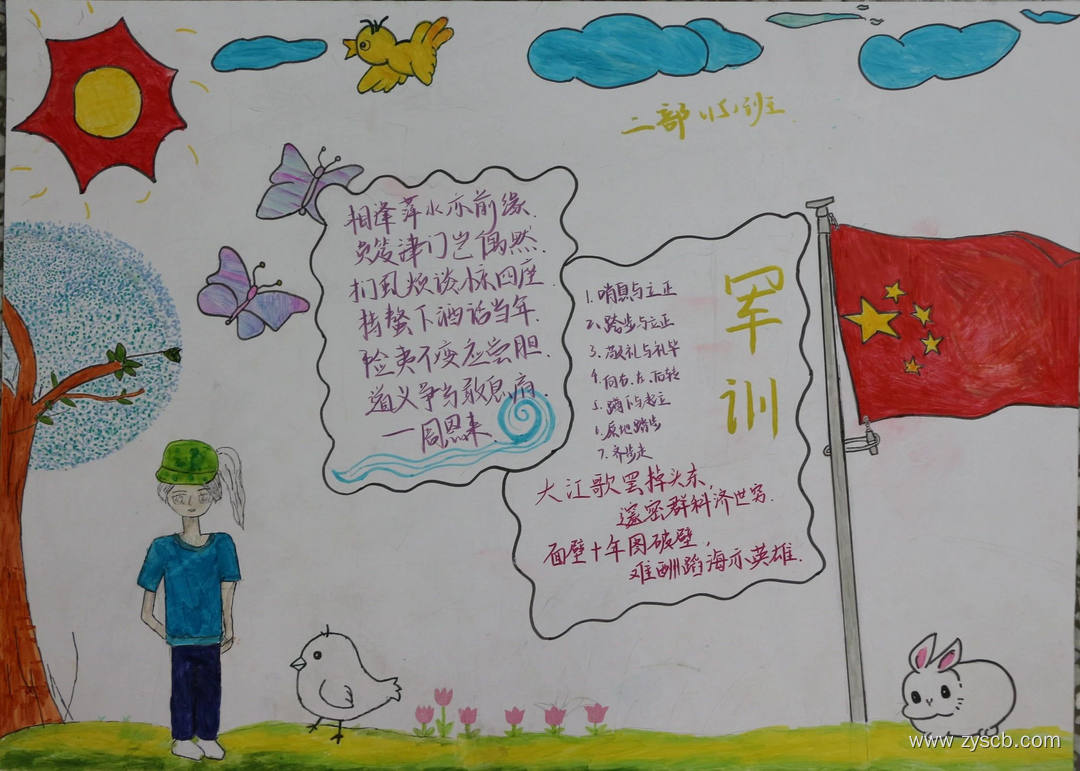 二部(15)班
相逢萍水亦前缘.
负笈津门岂偶然.
扪虱烦谈惊四座.
持螯下酒话当年.
险夷不变应尝胆.
道义争 敢息肩.
—周恩来.
军训
1. 哨息与立正
2. 跨步与立正
3. 敬礼与礼毕
4. 向右.左.后转
5. 蹲下与起立
6. 原地踏步
7. 齐步走
大江歌罢掉头东,
邃密群科济世穷.
面壁十年图破壁,
难酬蹈海亦英雄.
www.zyscb.com